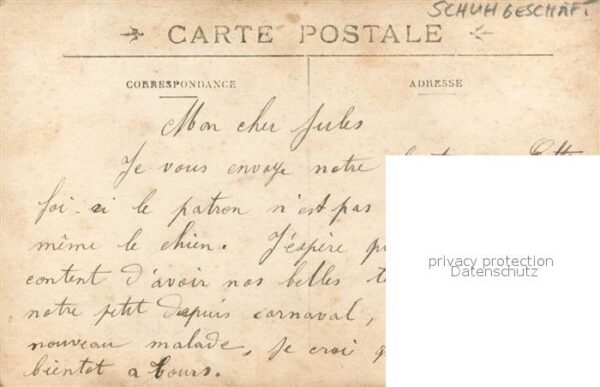 SCHUHGESCHÄFT
CARTE POSTALE
CORRESPONDANCE
ADRESSE
Mon cher Jules
Je vous envoye notre
foi-ci le patron n'est pas
même le chien. J'éspère
content d'avoir nos belles
notre petit depuis carnaval,
nouveau malade, je croi
bientot a tours.
privacy protection
Datenschutz